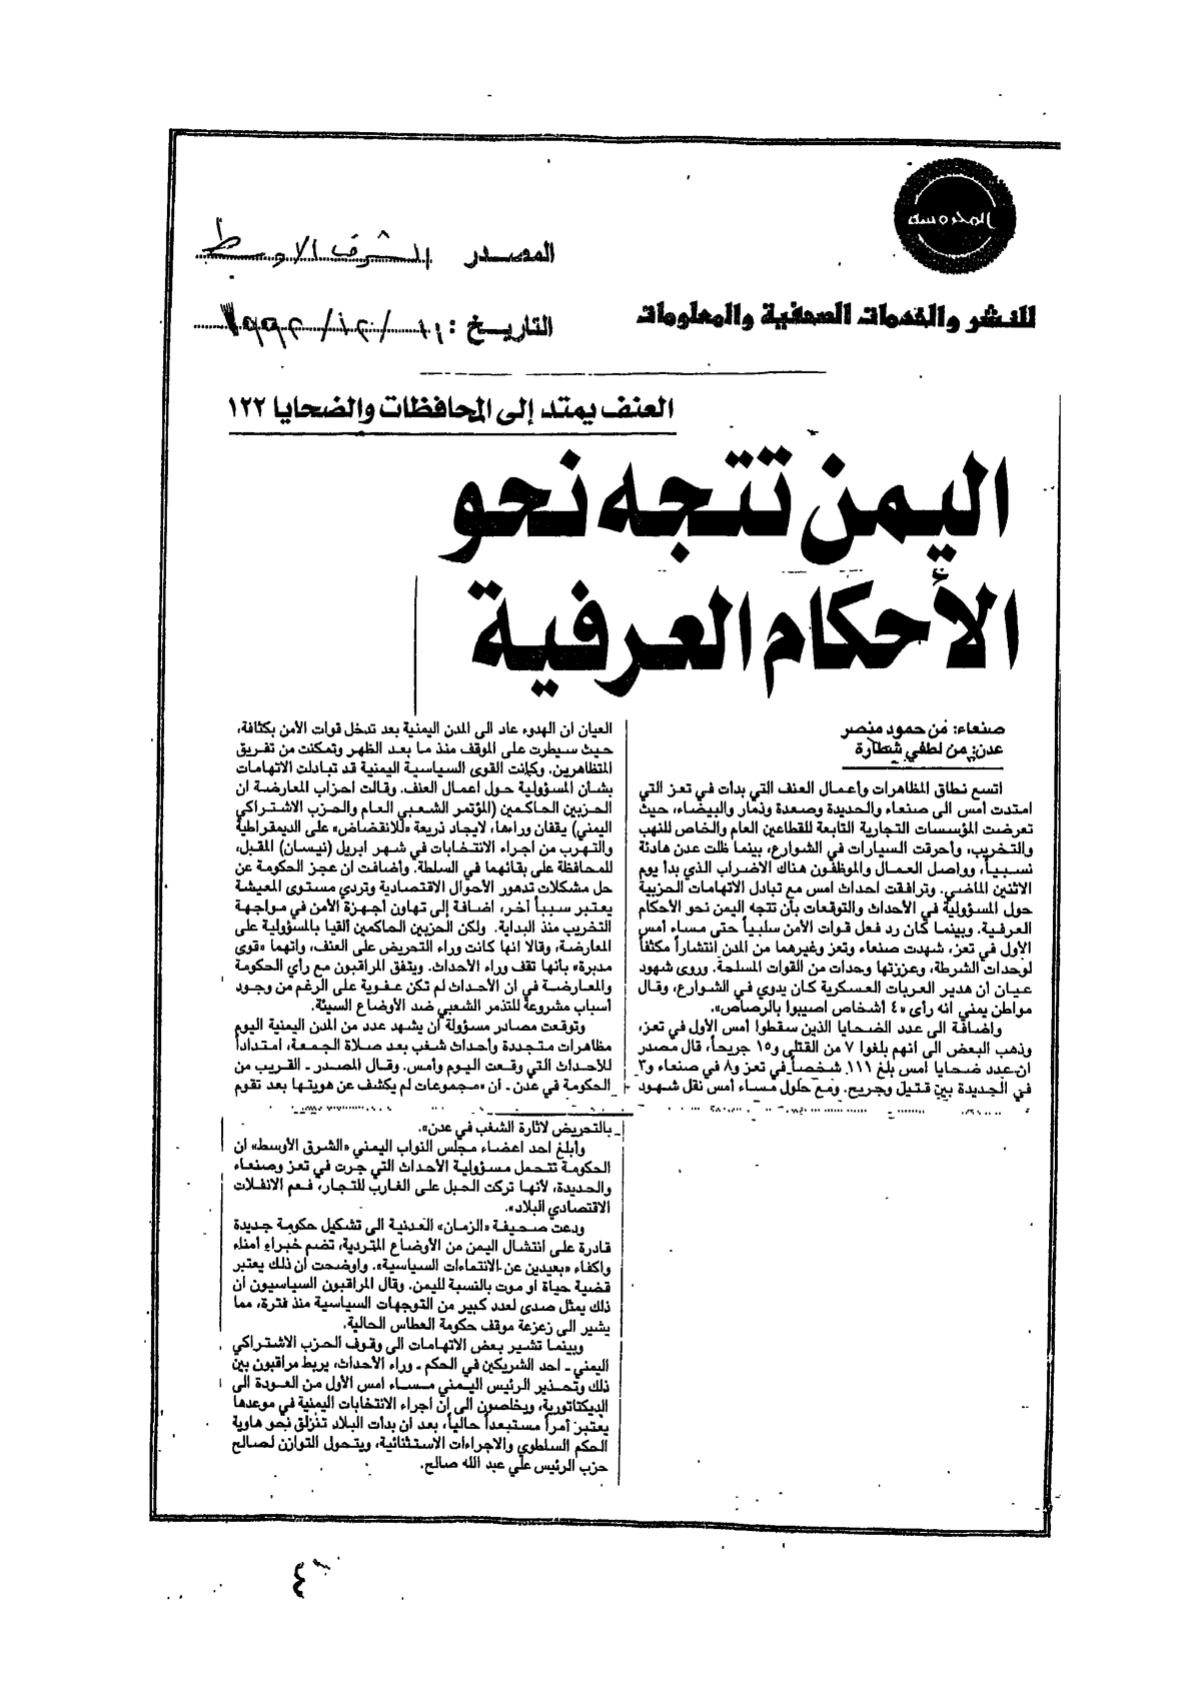 المحروسة
للنشر والخدمات الصحفية والمعلومات
المصدر الشرق الاوسط
التاريخ : ١١ / ١٢ / ١٩٩٢
العنف يمتد إلى المحافظات والضحايا ١٢٢
اليمن تتجه نحو
الأحكام العرفية
صنعاء: من حمود منصر
عدن: من لطفي شطارة
اتسع نطاق المظاهرات وأعمال العنف التي بدأت في تعز التي
امتدت أمس الى صنعاء والحديدة وصعدة وذمار والبيضاء، حيث
تعرضت المؤسسات التجارية التابعة للقطاعين العام والخاص للنهب
والتخريب، وأحرقت السيارات في الشوارع، بينما ظلت عدن هادئة
نسبياً، وواصل العمال والموظفون هناك الاضراب الذي بدأ يوم
الاثنين الماضي. وترافقت احداث امس مع تبادل الاتهامات الحزبية
حول المسؤولية في الأحداث والتوقعات بأن تتجه اليمن نحو الأحكام
العرفية. وبينما كان رد فعل قوات الأمن سلبياً حتى مساء امس
الأول في تعز، شهدت صنعاء وتعز وغيرهما من المدن انتشاراً مكثفاً
لوحدات الشرطة، وعززتها وحدات من القوات المسلحة. وروى شهود
عيان أن هدير العربات العسكرية كان يدوي في الشوارع، وقال
مواطن يمني انه رأى «٤ أشخاص اصيبوا بالرصاص».
واضافة الى عدد الضحايا الذين سقطوا امس الأول في تعز،
وذهب البعض الى انهم بلغوا ٧ من القتلى و١٥ جريحاً، قال مصدر
ان عدد ضحايا امس بلغ ١١١ شخصاً في تعز و٨ في صنعاء و٣
في الحديدة بين قتيل وجريح. ومع حلول مساء امس نقل شهود
العيان ان الهدوء عاد الى المدن اليمنية بعد تدخل قوات الأمن بكثافة،
حيث سيطرت على الموقف منذ ما بعد الظهر وتمكنت من تفريق
المتظاهرين. وكانت القوى السياسية اليمنية قد تبادلت الاتهامات
بشان المسؤولية حول اعمال العنف. وقالت احزاب المعارضة ان
الحزبين الحاكمين (المؤتمر الشعبي العام والحزب الاشتراكي
اليمني) يقفان وراءها، لايجاد ذريعة «للانقضاض» على الديمقراطية
والتهرب من اجراء الانتخابات في شهر ابريل (نيسان) المقبل،
للمحافظة على بقائهما في السلطة. وأضافت ان عجز الحكومة عن
حل مشكلات تدهور الأحوال الاقتصادية وتردي مستوى المعيشة
يعتبر سبباً أخر، اضافة إلى تهاون أجهزة الأمن في مواجهة
التخريب منذ البداية. ولكن الحزبين الحاكمين ألقيا بالمسؤولية على
المعارضة، وقالا انها كانت وراء التحريض على العنف، واتهما «قوى
مدبرة» بأنها تقف وراء الأحداث. ويتفق المراقبون مع رأي الحكومة
والمعارضة في ان الأحداث لم تكن عفوية على الرغم من وجود
أسباب مشروعة للتذمر الشعبي ضد الأوضاع السيئة.
وتوقعت مصادر مسؤولة أن يشهد عدد من المدن اليمنية اليوم
مظاهرات متجددة وأحداث شغب بعد صلاة الجمعة، امتداداً
للأحداث التي وقعت اليوم وأمس. وقال المصدر - القريب من
الحكومة في عدن - ان «مجموعات لم يكشف عن هويتها بعد تقوم
بالتحريض لاثارة الشغب في عدن».
وأبلغ احد اعضاء مجلس النواب اليمني «الشرق الأوسط» ان
الحكومة تتحمل مسؤولية الأحداث التي جرت في تعز وصنعاء
والحديدة، لأنها تركت الحبل على الغارب للتجار، فعم الانفلات
الاقتصادي البلاد».
ودعت صحيفة «الزمان» العدنية الى تشكيل حكومة جديدة
قادرة على انتشال اليمن من الأوضاع المتردية، تضم خبراء أمناء
واكفاء «بعيدين عن الانتماءات السياسية». واوضحت ان ذلك يعتبر
قضية حياة او موت بالنسبة لليمن. وقال المراقبون السياسيون ان
ذلك يمثل صدى لعدد كبير من التوجهات السياسية منذ فترة، مما
يشير الى زعزعة موقف حكومة العطاس الحالية.
وبينما تشير بعض الاتهامات الى وقوف الحزب الاشتراكي
اليمني - احد الشريكين في الحكم - وراء الأحداث، يربط مراقبون بين
ذلك وتحذير الرئيس اليمني مساء امس الأول من العودة الى
الديكتاتورية، ويخلصون الى ان اجراء الانتخابات اليمنية في موعدها
يعتبر أمراً مستبعداً حالياً، بعد ان بدات البلاد تنزلق نحو هاوية
الحكم السلطوي والاجراءات الاستثنائية، ويتحول التوازن لصالح
حزب الرئيس علي عبد الله صالح.